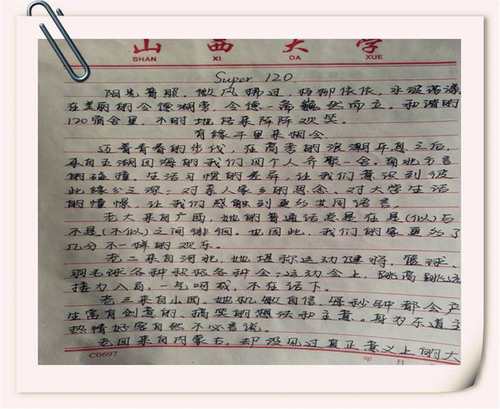 山西大学
SHAN XI DA XUE
Super 120
阳光普照，微风拂过，杨柳依依，水波荡漾
在美丽的令德湖旁，令德一斋巍然而立。和谐的
120宿舍里，不时地传来阵阵欢笑。
有缘千里来相会
迈着青春的步伐，在高考的浪潮平息之后，
来自五湖四海的我们四个人齐聚一舍。南北方言
的碰撞，生活习惯的差异，让我们意识到彼
此缘分之深；对家人家乡的思念，对大学生活
的憧憬，让我们感触到更多共同语言。
老大来自广西，她的普通话总是在是(似)与
不是(不似)之间徘徊。也因此，我们的家更多了
几分不一样的欢乐。
老二来自河北，她堪称运动健将，篮球、
羽毛球各种球拍各种会；运动会上，跳高跳远
接力八百，一气呵成，不在话下。
老三来自山西，她机敏自信，每秒钟都会产
生富有创意的、搞笑的想法和主意。身为东道主
热情好客自然不必言谈。
老四来自内蒙古，却没见过真正意义上的大
C0697
年 月